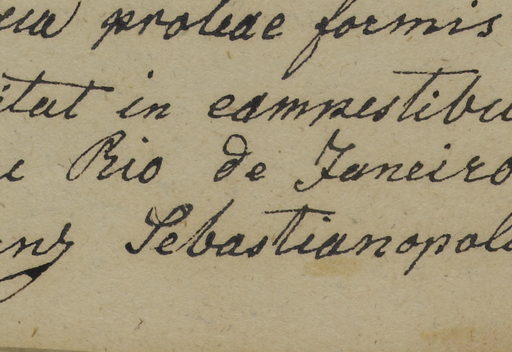 proteae formis
itat in campestibu
Rio de Janeiro
Sebastianopol